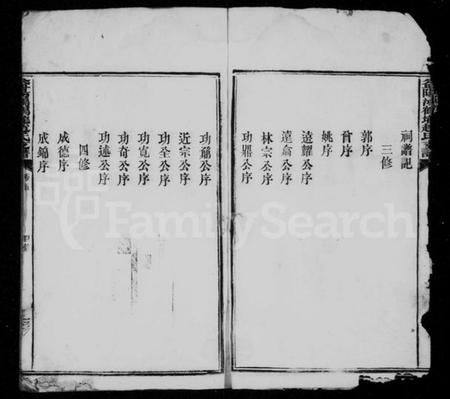 祠譜記
三修
郭序
首序
姚序
遠耀公序
達衾公序
林宗公序
功鼎公序
功勛公序
近宗公序
功全公序
功寬公序
功奇公序
功述公序
四修
成德序
成錦序
FamilySearch